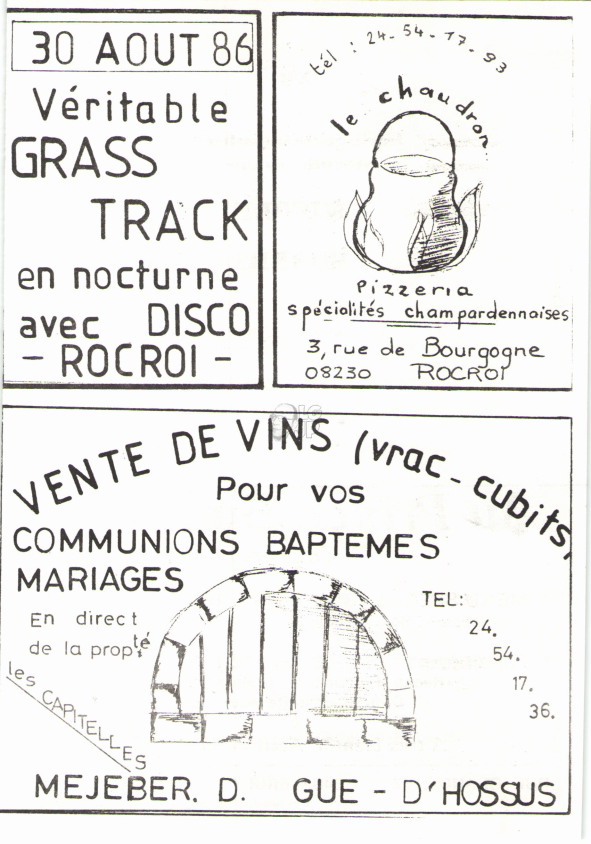 30 AOUT 86
Véritable
GRASS
TRACK
en nocturne
avec DISCO
- ROCROI -
tél : 24-54-17-93
le chaudron
Pizzeria
spécialités champardennaises
3, rue de Bourgogne
08230 ROCROI
VENTE DE VINS (vrac-cubits)
Pour vos
COMMUNIONS BAPTEMES
MARIAGES
En direct
de la propté
les CAPITELLES
TEL:
24.
54.
17.
36.
MEJEBER. D. GUE - D'HOSSUS